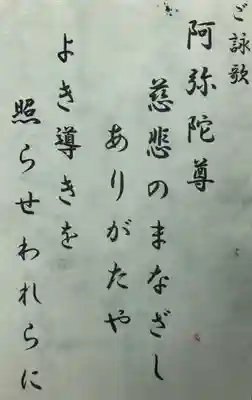 ご詠歌
阿弥陀尊
慈悲のまなざし
ありがたや
よき導きを
照らせわれらに